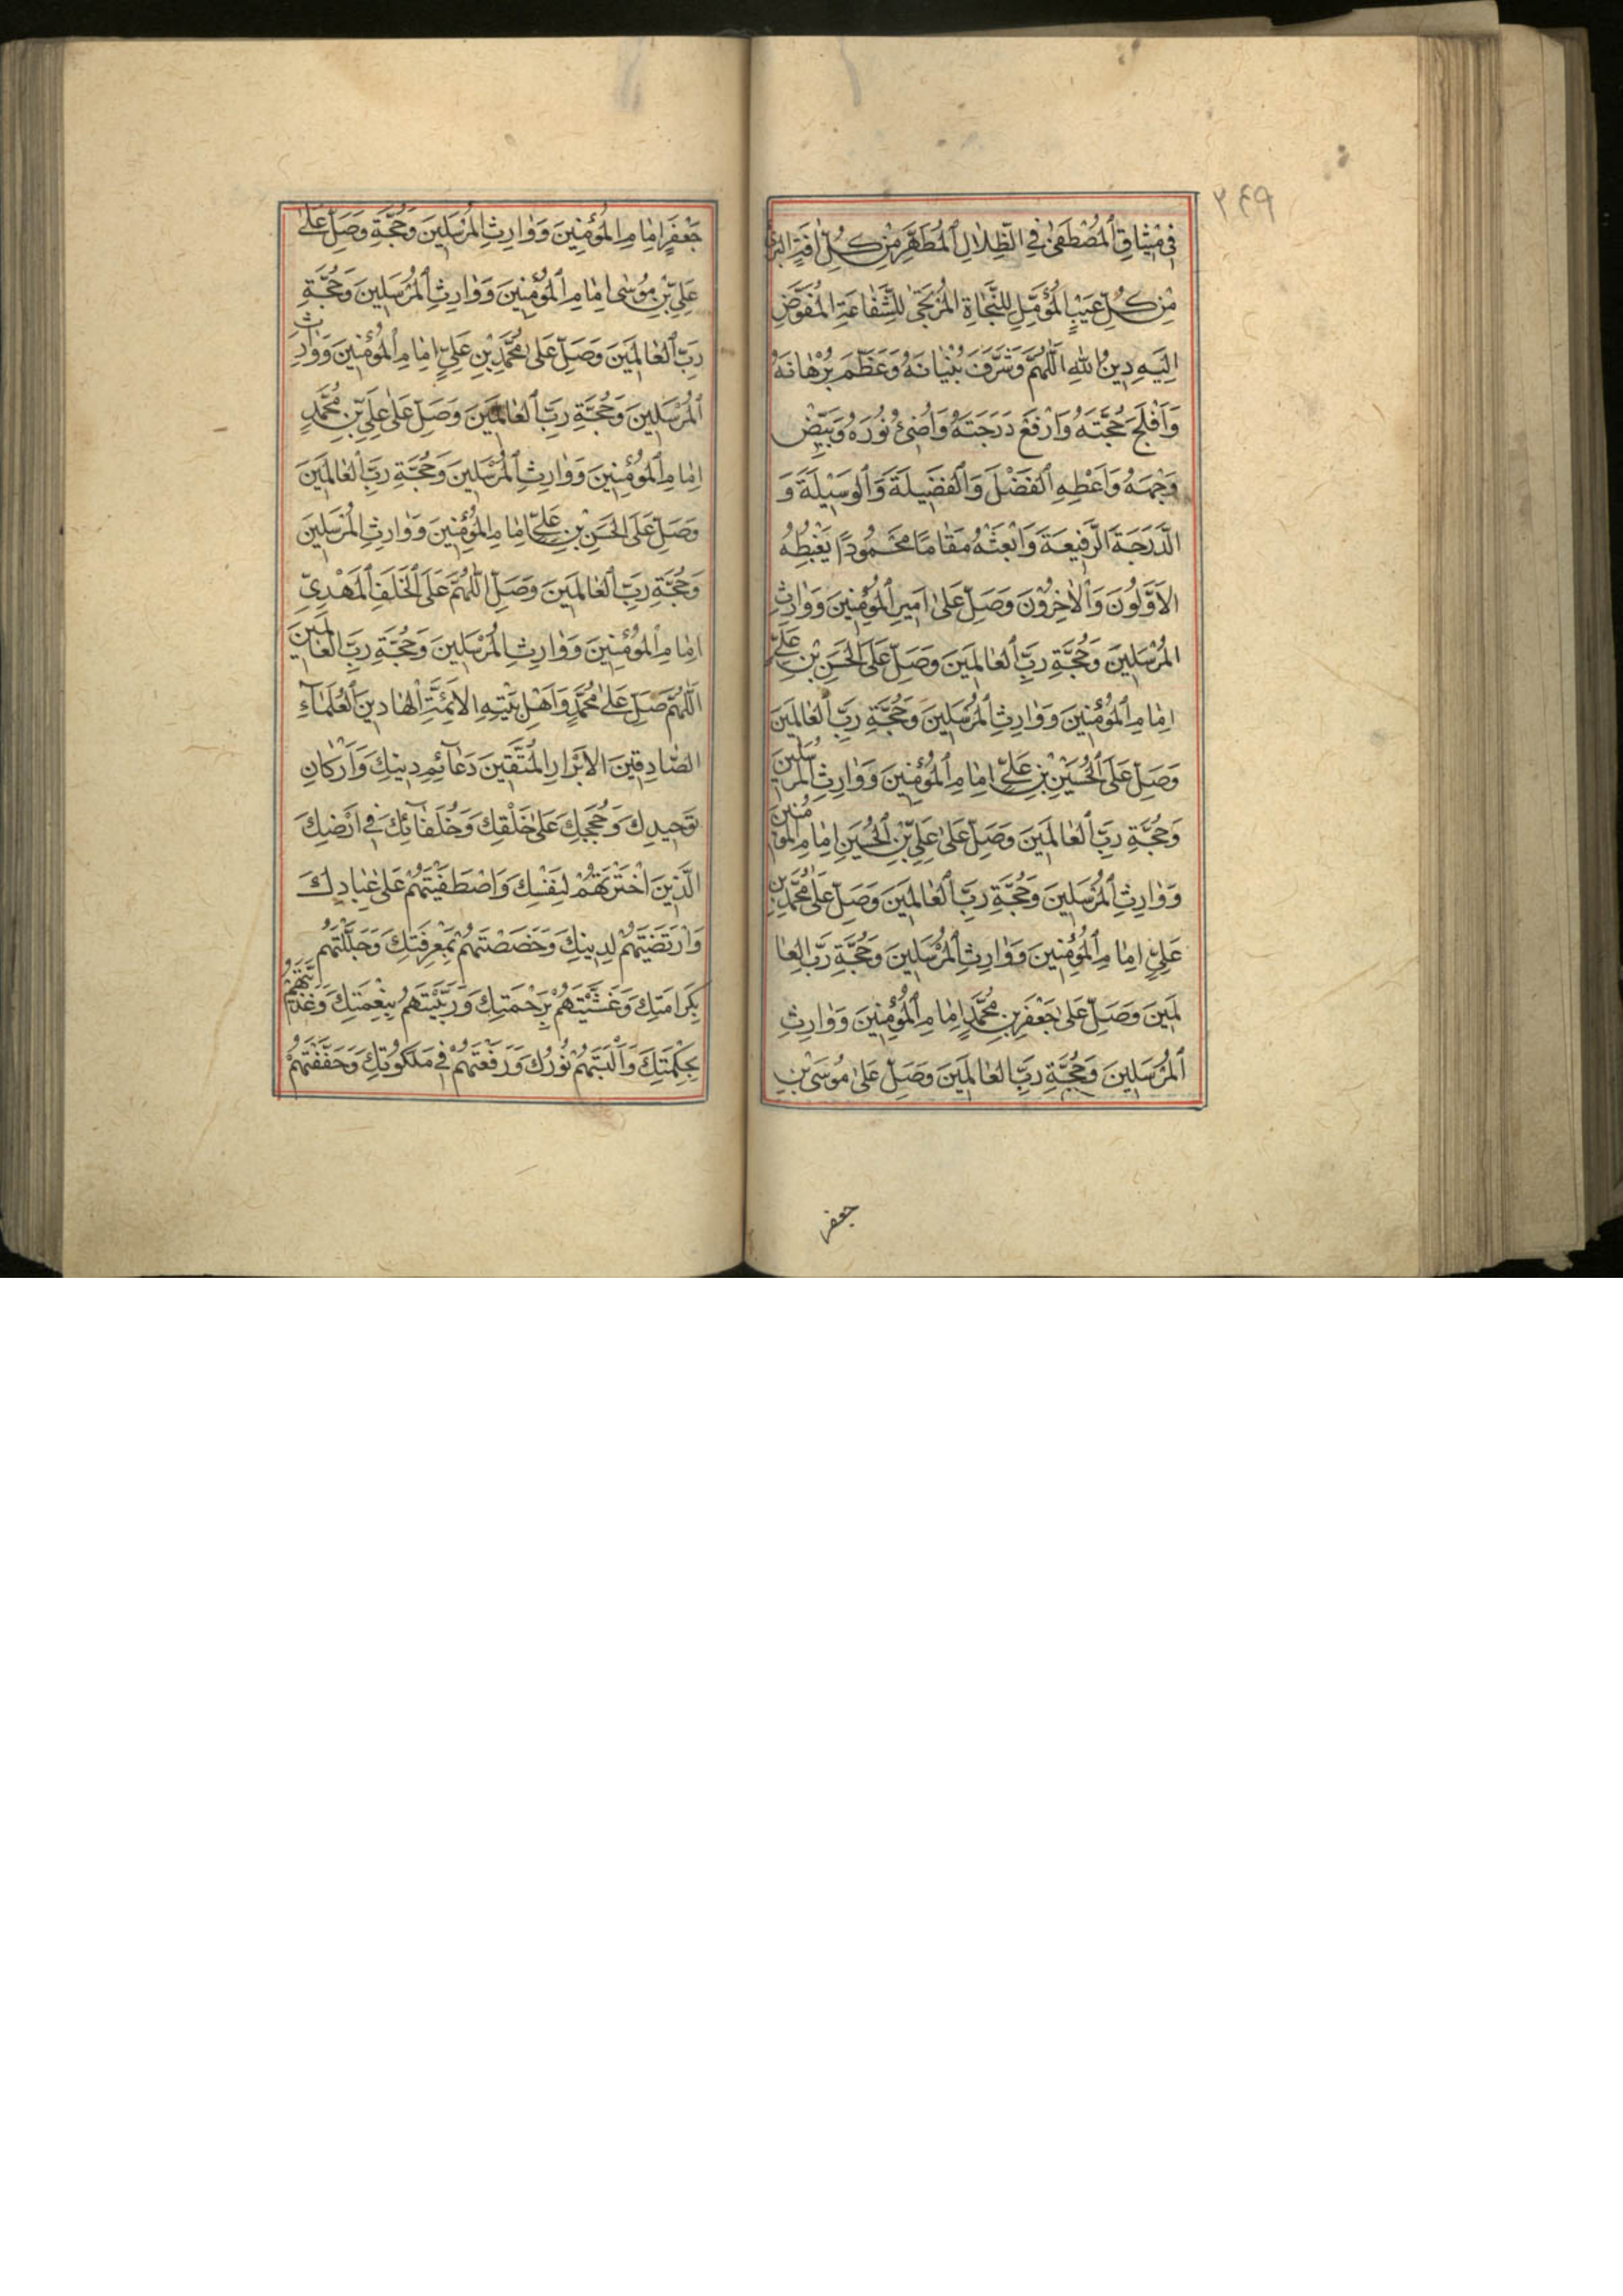 ٣٤٩
فِي مِيثٰاقِ ٱلْمُصْطَفىٰ فِي الظِّلٰالِ ٱلْمُطَهَّرِ مِنْ كُلِّ اٰفَةٍ البَرِيءِ
مِنْ كُلِّ عَيْبٍ الْمُؤَمَّلِ لِلنَّجٰاةِ الْمُرْتَجىٰ لِلشَّفٰاعَةِ الْمُفَوَّضِ
اِلَيْهِ دِينُ اللّٰهِ اَللّٰهُمَّ وَشَرِّفْ بُنْيٰانَهُ وَعَظِّمْ بُرْهٰانَهُ
وَاَفْلِجْ حُجَّتَهُ وَارْفَعْ دَرَجَتَهُ وَاَضِئْ نُورَهُ وَبَيِّضْ
وَجْهَهُ وَاَعْطِهِ ٱلْفَضْلَ وَٱلْفَضِيلَةَ وَٱلْوَسِيلَةَ وَ
الدَّرَجَةَ الرَّفِيعَةَ وَابْعَثْهُ مَقٰامًا مَحْمُودًا يَغْبِطُهُ
الْاَوَّلُونَ وَالْاٰخِرُونَ وَصَلِّ عَلىٰ اَمِيرِ ٱلْمُؤْمِنِينَ وَوٰارِثِ
الْمُرْسَلِينَ وَحُجَّةِ رَبِّ ٱلْعٰالَمِينَ وَصَلِّ عَلَى الْحَسَنِ بْنِ عَلِيٍّ
اِمٰامِ ٱلْمُؤْمِنِينَ وَوٰارِثِ ٱلْمُرْسَلِينَ وَحُجَّةِ رَبِّ ٱلْعٰالَمِينَ
وَصَلِّ عَلَى ٱلْحُسَيْنِ بْنِ عَلِيٍّ اِمٰامِ ٱلْمُؤْمِنِينَ وَوٰارِثِ الْمُرْسَلِينَ
وَحُجَّةِ رَبِّ ٱلْعٰالَمِينَ وَصَلِّ عَلىٰ عَلِيِّ بْنِ ٱلْحُسَيْنِ اِمٰامِ الْمُؤْمِنِينَ
وَوٰارِثِ ٱلْمُرْسَلِينَ وَحُجَّةِ رَبِّ ٱلْعٰالَمِينَ وَصَلِّ عَلىٰ مُحَمَّدِ بْنِ
عَلِيٍّ اِمٰامِ ٱلْمُؤْمِنِينَ وَوٰارِثِ ٱلْمُرْسَلِينَ وَحُجَّةِ رَبِّ الْعٰا
لَمِينَ وَصَلِّ عَلىٰ جَعْفَرِ بْنِ مُحَمَّدٍ اِمٰامِ ٱلْمُؤْمِنِينَ وَوٰارِثِ
ٱلْمُرْسَلِينَ وَحُجَّةِ رَبِّ الْعٰالَمِينَ وَصَلِّ عَلىٰ مُوسَى بْنِ
جعفر
جَعْفَرٍ اِمٰامِ الْمُؤْمِنِينَ وَوٰارِثِ الْمُرْسَلِينَ وَحُجَّةِ وَصَلِّ عَلىٰ
عَلِيِّ بْنِ مُوسٰى اِمٰامِ ٱلْمُؤْمِنِينَ وَوٰارِثِ ٱلْمُرْسَلِينَ وَحُجَّةِ
رَبِّ ٱلْعٰالَمِينَ وَصَلِّ عَلىٰ مُحَمَّدِ بْنِ عَلِيٍّ اِمٰامِ ٱلْمُؤْمِنِينَ وَوٰارِثِ
ٱلْمُرْسَلِينَ وَحُجَّةِ رَبِّ ٱلْعٰالَمِينَ وَصَلِّ عَلىٰ عَلِيِّ بْنِ مُحَمَّدٍ
اِمٰامِ ٱلْمُؤْمِنِينَ وَوٰارِثِ ٱلْمُرْسَلِينَ وَحُجَّةِ رَبِّ ٱلْعٰالَمِينَ
وَصَلِّ عَلَى الْحَسَنِ بْنِ عَلِيٍّ اِمٰامِ الْمُؤْمِنِينَ وَوٰارِثِ الْمُرْسَلِينَ
وَحُجَّةِ رَبِّ ٱلْعٰالَمِينَ وَصَلِّ اللّٰهُمَّ عَلَى ٱلْخَلَفِ ٱلْمَهْدِيِّ
اِمٰامِ ٱلْمُؤْمِنِينَ وَوٰارِثِ الْمُرْسَلِينَ وَحُجَّةِ رَبِّ الْعٰالَمِينَ
اَللّٰهُمَّ صَلِّ عَلىٰ مُحَمَّدٍ وَاَهْلِ بَيْتِهِ الْاَئِمَّةِ ٱلْهٰادِينَ ٱلْعُلَمٰاءِ
الصّٰادِقِينَ الْاَبْرٰارِ الْمُتَّقِينَ دَعٰائِمِ دِينِكَ وَاَرْكٰانِ
تَوْحِيدِكَ وَحُجَجِكَ عَلىٰ خَلْقِكَ وَخُلَفٰائِكَ فِي اَرْضِكَ
الَّذِينَ اخْتَرْتَهُمْ لِنَفْسِكَ وَاصْطَفَيْتَهُمْ عَلىٰ عِبٰادِكَ
وَارْتَضَيْتَهُمْ لِدِينِكَ وَخَصَصْتَهُمْ بِمَعْرِفَتِكَ وَجَلَّلْتَهُمْ
بِكَرٰامَتِكَ وَغَشَّيْتَهُمْ بِرَحْمَتِكَ وَرَبَّيْتَهُمْ بِنِعْمَتِكَ وَغَذَّيْتَهُمْ
بِحِكْمَتِكَ وَاَلْبَسْتَهُمْ نُورَكَ وَرَفَعْتَهُمْ فِي مَلَكُوتِكَ وَحَفَفْتَهُمْ